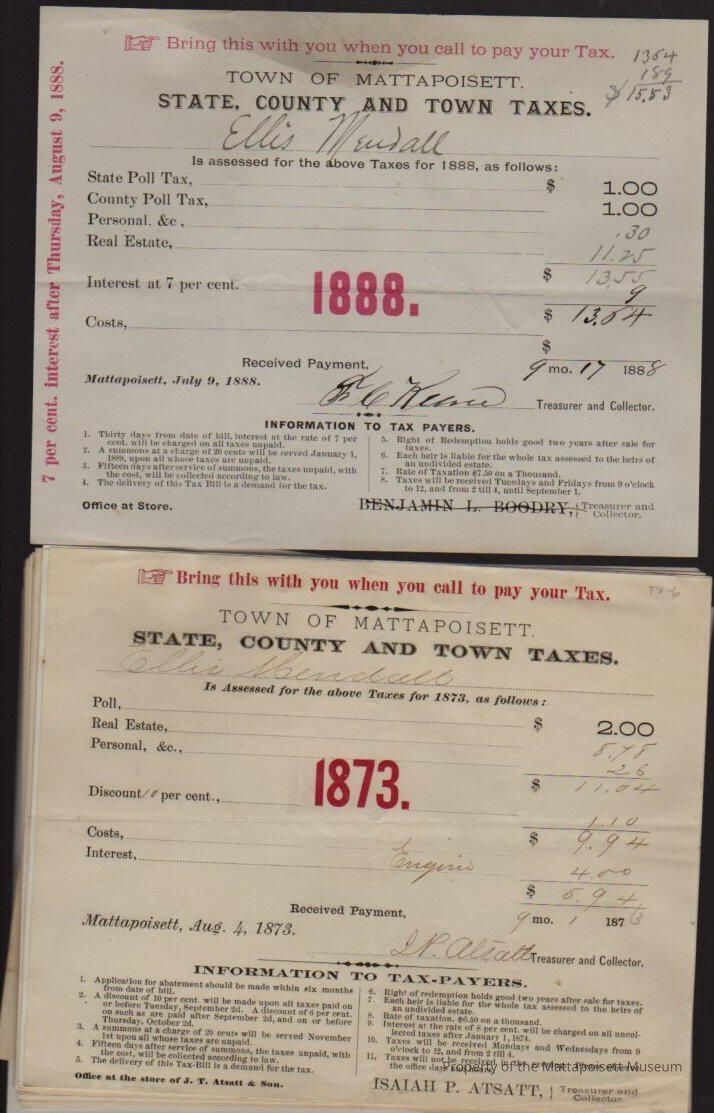 Bring this with you when you call to pay your Tax.
1364
189
$15.53
TOWN OF MATTAPOISETT.
STATE, COUNTY AND TOWN TAXES.
Ellis Mendall
Is assessed for the above Taxes for 1888, as follows:
State Poll Tax, $ 1.00
County Poll Tax, 1.00
Personal. &c., .30
Real Estate, 11.25
$ 13.55
Interest at 7 per cent. 9
1888.
Costs, $ 13.64
$
Received Payment, 9 mo. 17 1888
Mattapoisett, July 9, 1888.
Treasurer and Collector.
7 per cent. interest after Thursday, August 9, 1888.
INFORMATION TO TAX PAYERS.
1. Thirty days from date of bill, interest at the rate of 7 per
cent. will be charged on all taxes unpaid.
2. A summons at a charge of 20 cents will be served January 1,
1889, upon all whose taxes are unpaid.
3. Fifteen days after service of summons, the taxes unpaid, with
the cost, will be collected according to law.
4. The delivery of this Tax Bill is a demand for the tax.
5. Right of Redemption holds good two years after sale for
taxes.
6. Each heir is liable for the whole tax assessed to the heirs of
an undivided estate.
7. Rate of Taxation $7.50 on a Thousand.
8. Taxes will be received Tuesdays and Fridays from 9 o'clock
to 12, and from 2 till 4, until September 1.
Office at Store.
BENJAMIN L. BOODRY, Treasurer and
Collector.
Bring this with you when you call to pay your Tax.
TX-6
TOWN OF MATTAPOISETT.
STATE, COUNTY AND TOWN TAXES.
Ellis Mendall
Is Assessed for the above Taxes for 1873, as follows:
Poll, $ 2.00
Real Estate, 8.78
Personal, &c., 26
$ 11.04
1873.
Discount 10 per cent., 1.10
Costs, $ 9.94
Interest, Engine 4.00
$ 5.94
Received Payment, 9 mo. 1 1873
Mattapoisett, Aug. 4, 1873.
I.P. Atsatt Treasurer and Collector.
INFORMATION TO TAX-PAYERS.
1. Application for abatement should be made within six months
from date of bill.
2. A discount of 10 per cent. will be made upon all taxes paid on
or before Tuesday, September 2d. A discount of 6 per cent.
on such as are paid after September 2d, and on or before
Thursday, October 2d.
3. A summons at a charge of 20 cents will be served November
1st upon all whose taxes are unpaid.
4. Fifteen days after service of summons, the taxes unpaid, with
the cost, will be collected according to law.
5. The delivery of this Tax-Bill is a demand for the tax.
6. Right of redemption holds good two years after sale for taxes.
7. Each heir is liable for the whole tax assessed to the heirs of
an undivided estate.
8. Rate of taxation, $6.50 on a thousand.
9. Interest at the rate of 8 per cent. will be charged on all uncol-
lected taxes after January 1, 1874.
10. Taxes will be received Mondays and Wednesdays from 9
o'clock to 12, and from 2 till 4.
11. Taxes will not be received
the office days
Property of the Mattapoisett Museum
Office at the store of J. T. Atsatt & Son.
ISAIAH P. ATSATT, Treasurer and
Collector.